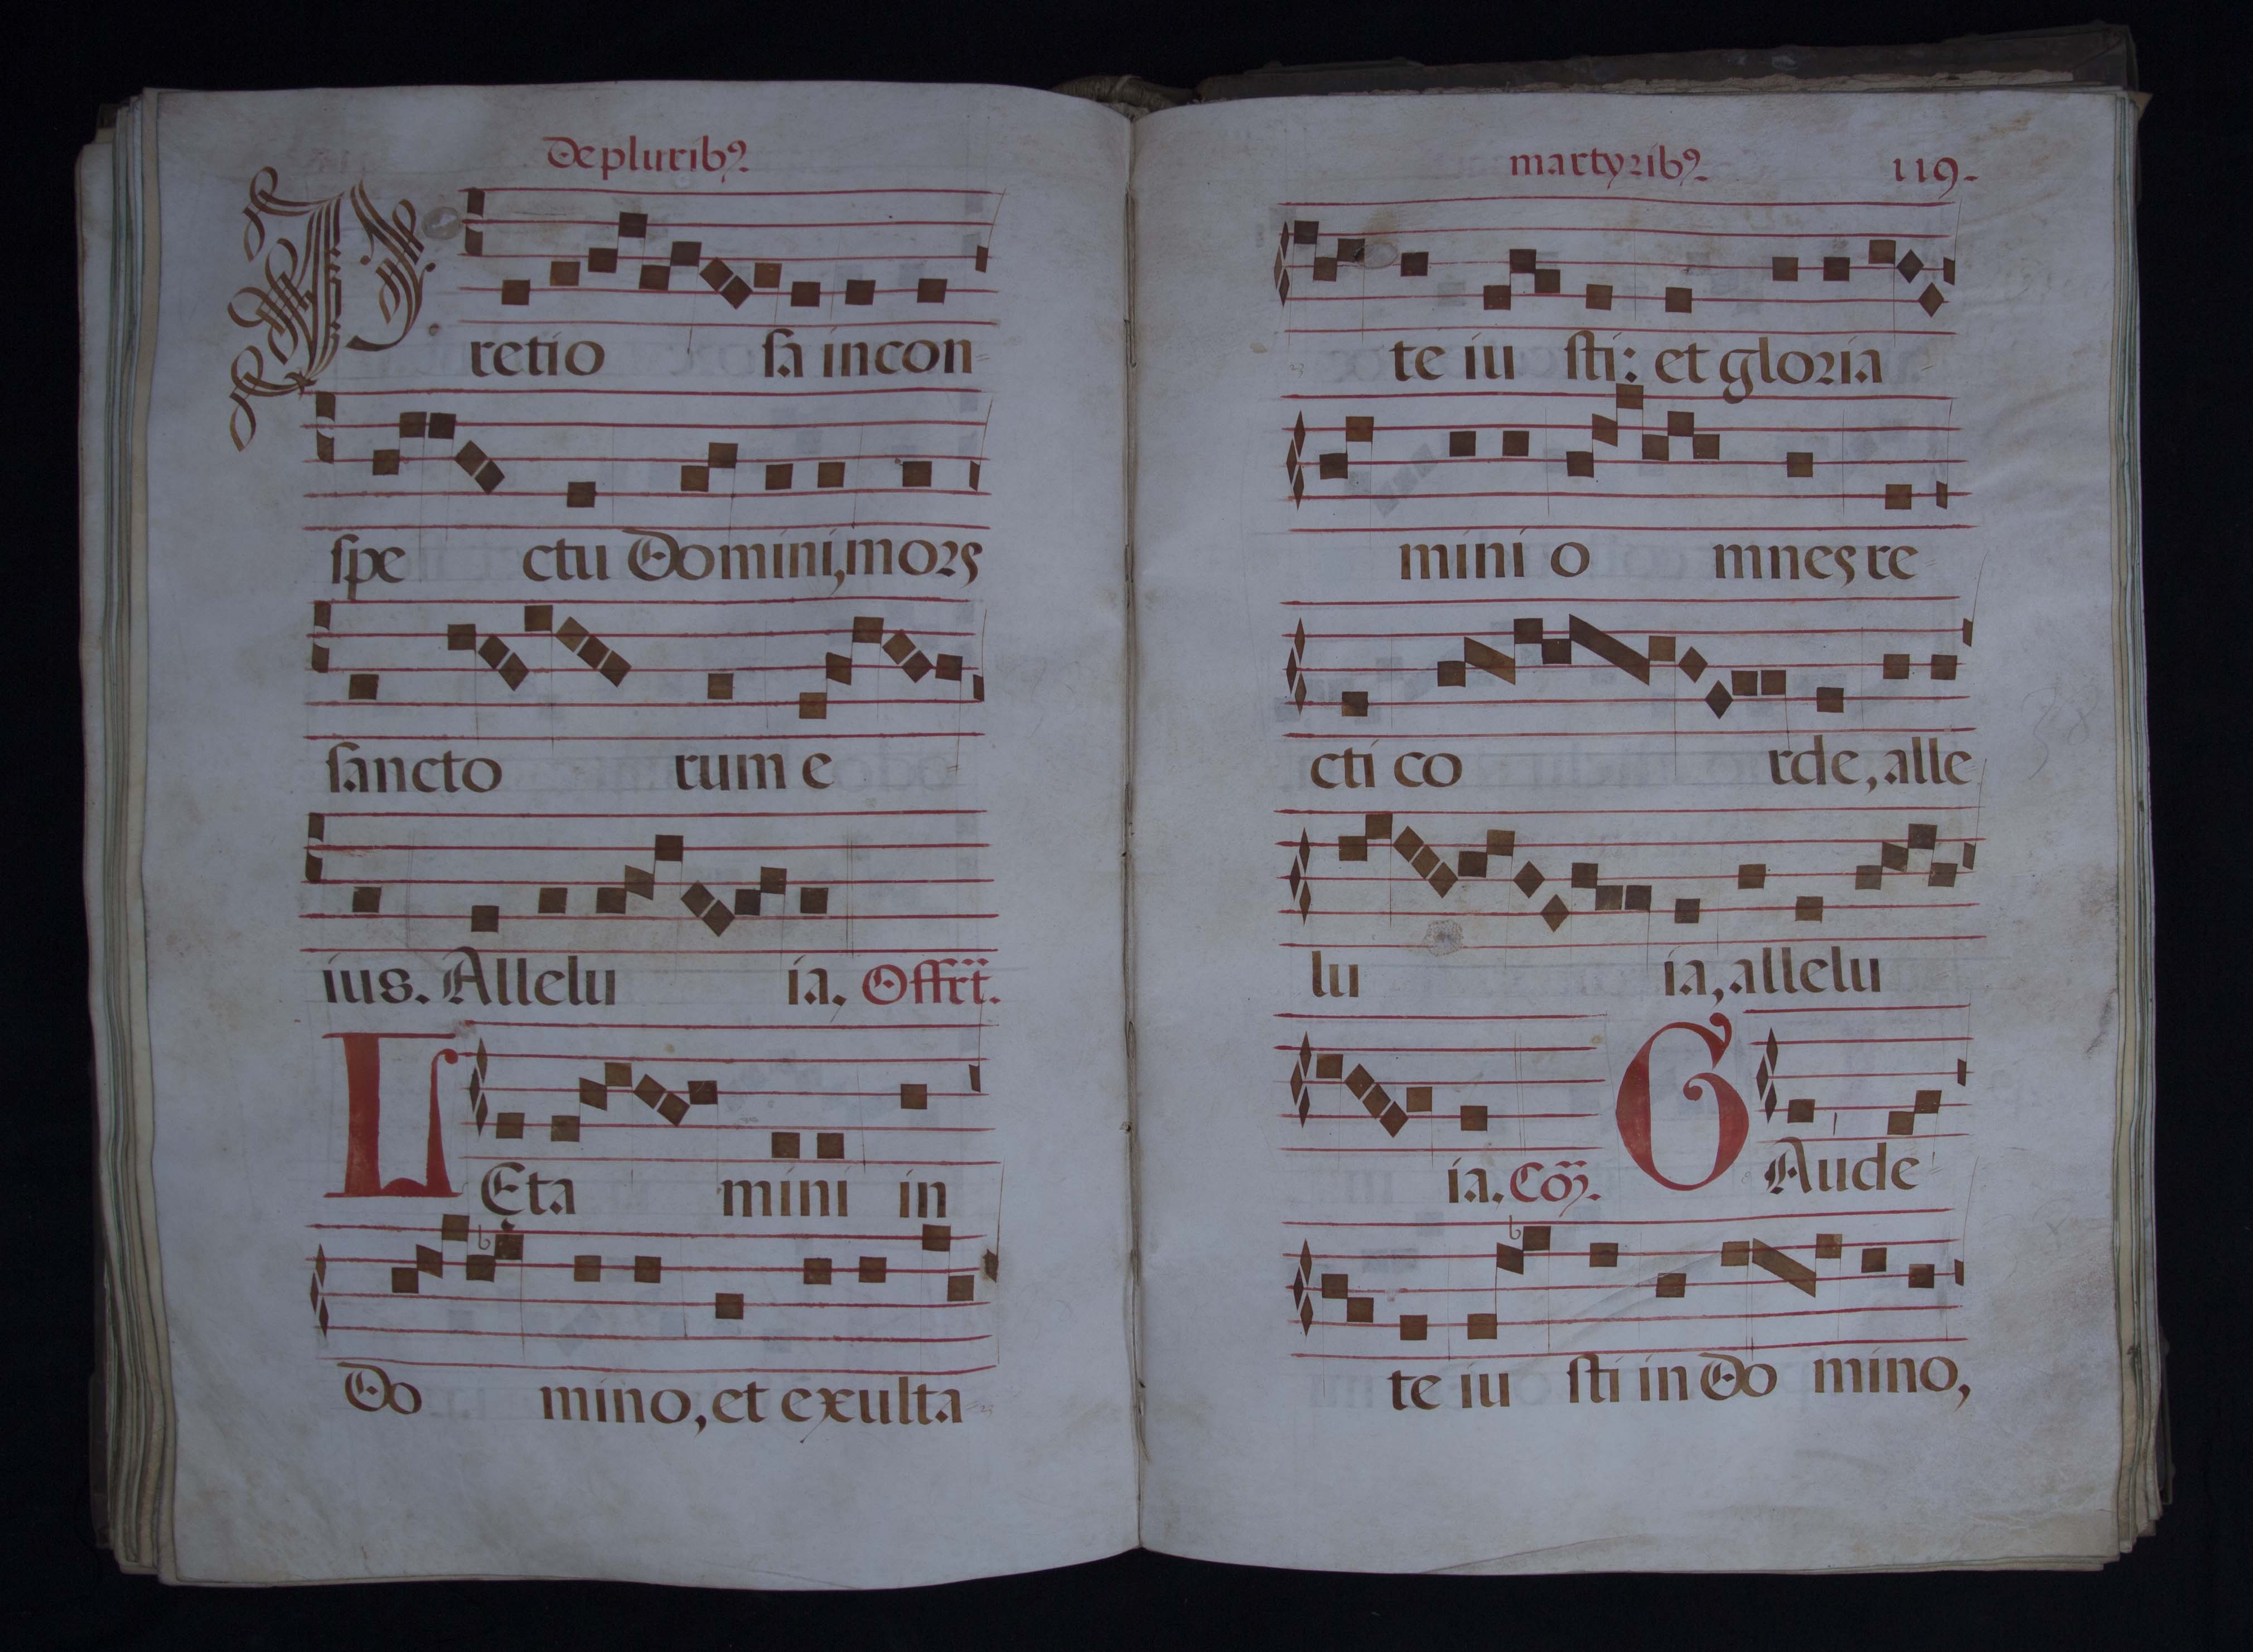 De pluribꝰ
P
retio sa incon=
spe ctu Domini, mors
sancto rum e
ius. Allelu ia. Offrt.
L Eta mini in
Do mino, et exulta=
martyribꝰ 119.
te iu sti: et gloria
mini o mnes re
cti co rde, alle
lu ia, allelu
ia. Cõ. G Aude
te iu sti in Do mino,